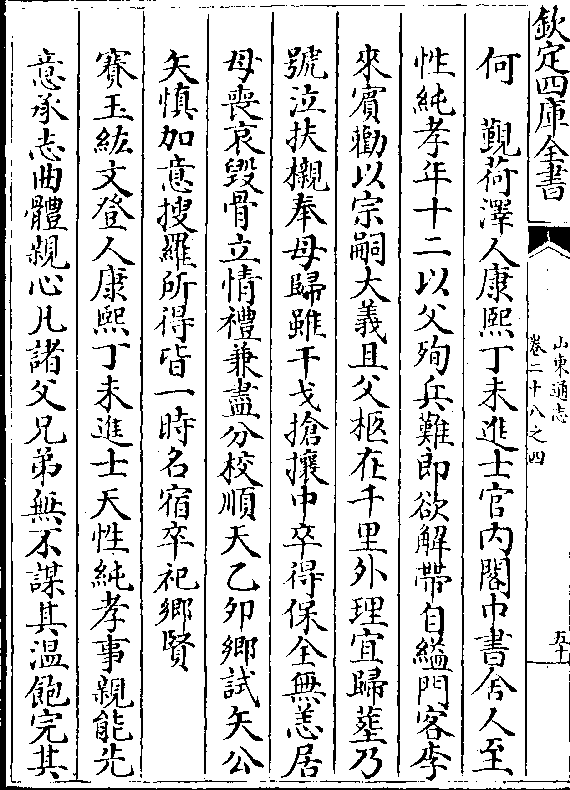 欽定四庫全書
山東通志
卷二十八之四
五十
何　覲荷澤人康熙丁未進士官内閣中書舍人至
性純孝年十二以父殉兵難即欲解帶自縊門客李
來賓勸以宗嗣大義且父柩在千里外理宜歸塟乃
號泣扶櫬奉母歸雖干戈搶攘中卒得保全無恙居
母喪哀毀骨立情禮兼盡分校順天乙卯鄉試矢公
矢慎加意搜羅所得皆一時名宿卒祀鄉賢
賽玉紘文登人康熙丁未進士天性純孝事親能先
意承志曲體親心凡諸父兄弟無不謀其溫飽完其